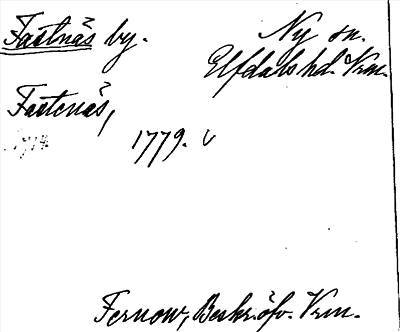 Fastnäs by. Ny sn.
Elfdals hd. Vrm.
Fastenäs,
1779. v
Fernow, Beskr. öfv. Vrm.